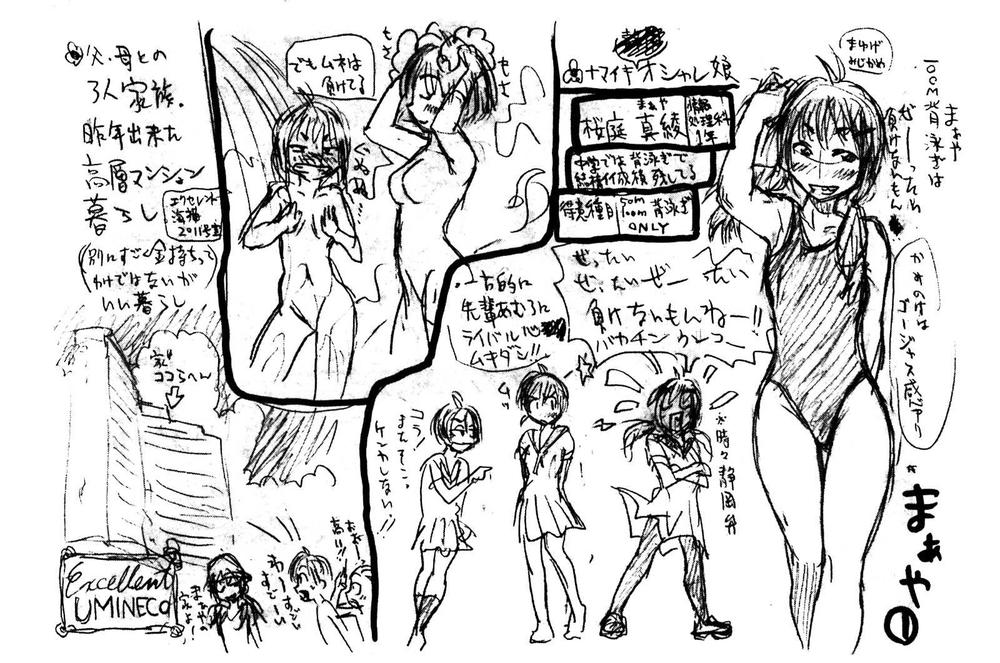 まゆげ
みじかめ
まぁや
100M背泳ぎは
ぜーったい
負けないもん
かみのけは
ゴージャス感アリ
まぁや①
ナマイキオシャレ娘
まぁや
桜庭 真綾
情報
処理科
1年
中学では背泳ぎで
結構イイ成績残してる
得意種目
50m
100m
背泳ぎ
ONLY
ぜったい
ぜったいぜーったい
負けないもんねー!!
バカチンがーっ
一方的に
先輩あむろに
ライバル心
ムキダシ!!
※時々静岡弁
コラ!
まちそこっ
ケンカしない!!
でもムネは
負けてる
もさ
もさ
父・母との
3人家族。
昨年出来た
高層マンション
暮らし
エクセレント
海猫
2011号室
(別にすごく金持ちって
わけではないが
いい暮らし
家
ココらへん
Excellent
UMINECO
高い!!
わーすごい
すごーい